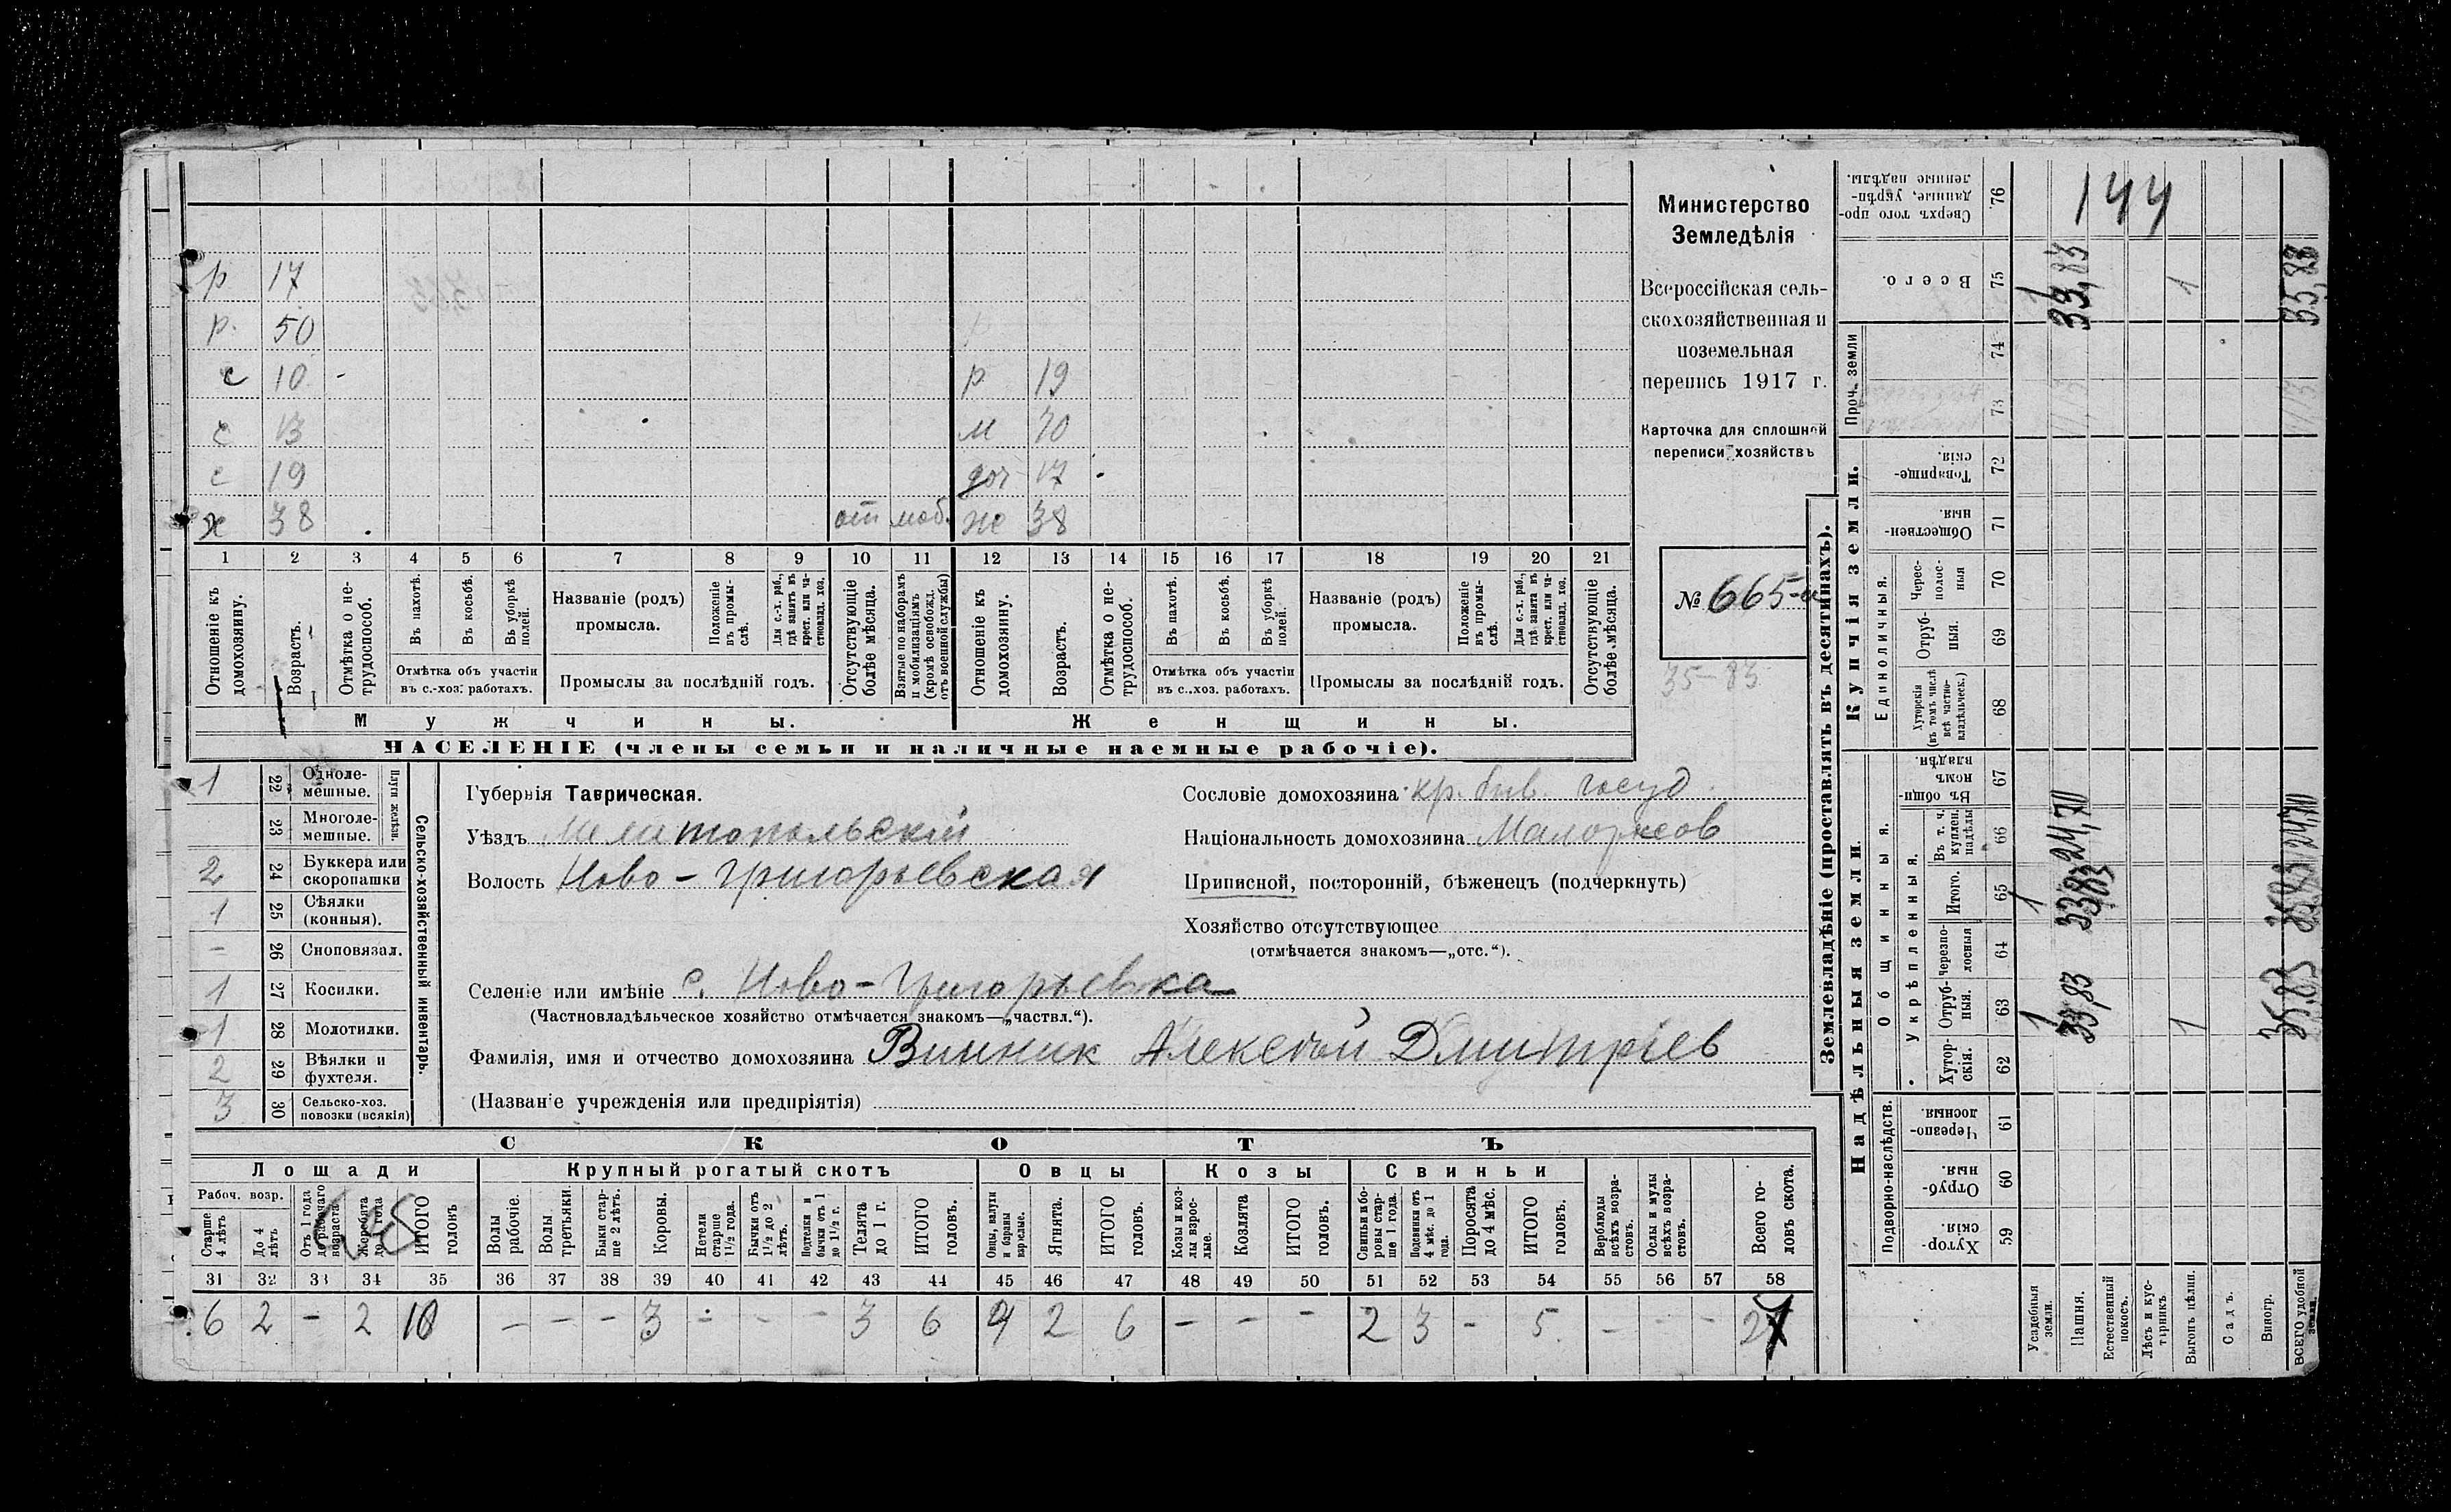 р 17
р. 50
с 10 - р 19
с 13 м 70
с 19 доч 17
х 38 от моб. же 38
1 2 3 4 5 6 7 8 9 10 11 12 13 14 15 16 17 18 19 20 21
Отношеніе къ домохозяину.
Возрастъ.
Отмѣтка о не-трудоспособ.
Въ пахотѣ.
Въ косьбѣ.
Въ уборкѣ полей.
Отмѣтка объ участіи
въ с.-хоз. работахъ.
Названіе (родъ)
промысла.
Положеніе въ промы-слѣ.
Для с.-х. раб., гдѣ занятъ въ крест. или ча-стновлад. хоз.
Промыслы за послѣдній годъ.
Отсутствующіе болѣе мѣсяца.
Взятые по наборамъ и мобилизаціямъ (кромѣ освобожд. отъ военной службы)
Отношеніе къ домохозяину.
Возрастъ.
Отмѣтка о не-трудоспособ.
Въ пахотѣ.
Въ косьбѣ.
Въ уборкѣ полей.
Отмѣтка объ участіи
въ с.-хоз. работахъ.
Названіе (родъ)
промысла.
Положеніе въ промы-слѣ.
Для с.-х. раб., гдѣ занята въ крест. или ча-стновлад. хоз.
Промыслы за послѣдній годъ.
Отсутствующіе болѣе мѣсяца.
Мужчины. Женщины.
НАСЕЛЕНІЕ (члены семьи и наличные наемные рабочіе).
Министерство
Земледѣлія
Всероссійская сель-
скохозяйственная и
поземельная
перепись 1917 г.
Карточка для сплошной
переписи хозяйствъ
№ 665-а
35-83
Сельско-хозяйственный инвентарь.
Плуги желѣзн.
1 22 Одноле-мешные.
23 Многоле-мешные.
2 24 Буккера или скоропашки
1 25 Сѣялки (конныя).
- 26 Сноповязал.
1 27 Косилки.
1 28 Молотилки.
2 29 Вѣялки и фухтеля.
3 30 Сельско-хоз. повозки (всякія)
Губернія Таврическая.
Уѣздъ Мелитопольскій
Волость Ново-Григорьевская
Сословіе домохозяина кр. быв. госуд.
Національность домохозяина Малоросов
Приписной, посторонній, бѣженецъ (подчеркнуть)
Хозяйство отсутствующее
(отмѣчается знакомъ—„отс.“).
Селеніе или имѣніе с. Ново-Григорьевка
(Частновладѣльческое хозяйство отмѣчается знакомъ—„частвл.“).
Фамилія, имя и отчество домохозяина Винник Алексѣй Дмитріев
(Названіе учрежденія или предпріятія)
СКОТЪ
Лошади Крупный рогатый скотъ Овцы Козы Свиньи
Рабоч. возр.
Старше 4 лѣтъ
До 4 лѣтъ
Отъ 1 года до рабочаго возраста
Жеребята до 1 года
ИТОГО головъ
Волы рабочіе.
Волы третьяки.
Быки стар-ше 2 лѣтъ.
Коровы.
Нетели старше 1½ года.
Бычки отъ 1½ до 2 лѣтъ.
Подтелки и бычки отъ 1 до 1½ г.
Телята до 1 г.
ИТОГО головъ.
Овцы, валухи и бараны взрослые.
Ягнята.
ИТОГО головъ.
Козы и коз-лы взрос-лые.
Козлята
ИТОГО головъ.
Свиньи и бо-ровы стар-ше 1 года.
Подсвинки отъ 4 мѣс. до 1 года.
Поросята до 4 мѣс.
ИТОГО головъ.
Верблюды всѣхъ возра-стовъ.
Ослы и мулы всѣхъ возра-стовъ.
Всего го-ловъ скота.
31 32 33 34 35 36 37 38 39 40 41 42 43 44 45 46 47 48 49 50 51 52 53 54 55 56 57 58
6 2 - 2 10 - - - 3 - - - 3 6 4 2 6 - - - 2 3 - 5 - - - 27
Землевладѣніе (проставлять въ десятинахъ).
Надѣльныя земли. Купчія земли. Проч. земли
Подворно-наслѣдств. Общинныя. Укрѣпленныя. Единоличныя.
Хутор-скія. 59
Отруб-ныя. 60
Черезпо-лосныя. 61
Хутор-скія. 62
Отруб-ныя. 63
Черезпо-лосныя 64
Итого. 65
Въ т. ч. куплен. надѣлы 66
Въ общи-номъ владѣн. 67
Хуторскія (въ томъ числѣ всѣ частно-владѣльческ.) 68
Отруб-ныя. 69
Черес-полос-ныя 70
Обществен-ныя. 71
Товарище-скія. 72
73
74
Всего. 75
Сверхъ того про-данные, укрѣп-ленные надѣлы. 76
144
Усадебныя земли. 1 1 1
Пашня. 33,83 33,83 24,70 33,83
Естественный покосъ.
Лѣсъ и кус-тарникъ
Выгонъ цѣлин. 1 1
Садъ.
Виногр.
ВСЕГО удобной земли. 35,83 35,83 24,70 35,83